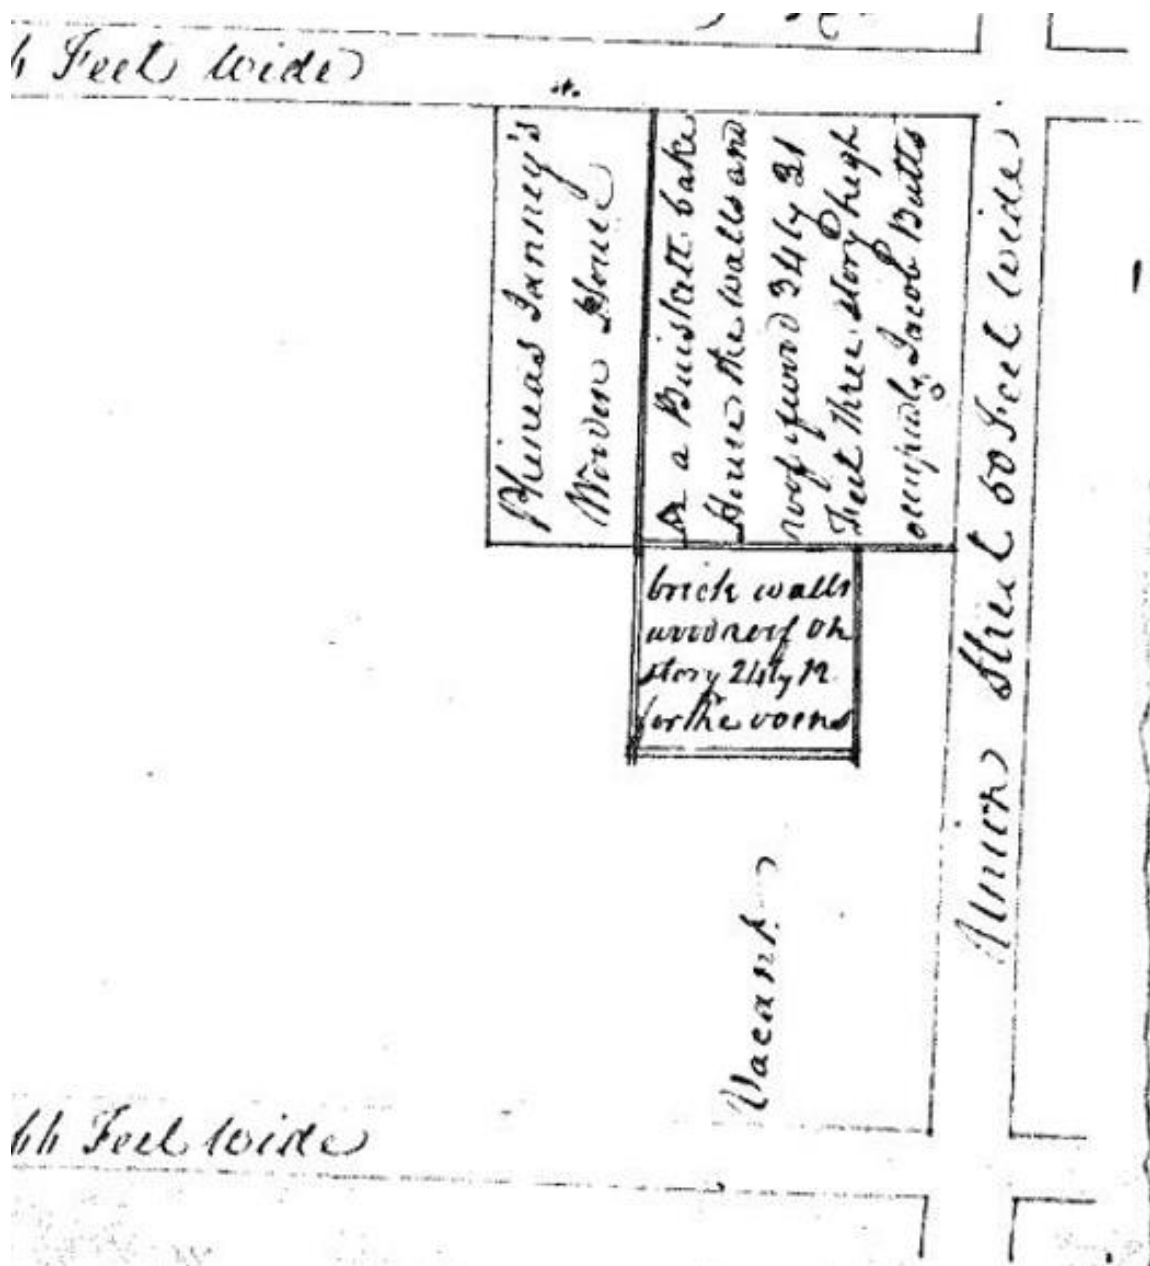 66 Feet wide
Phineas Janney's
Wooden House
A a Buiskett bake
House the walls and
roof of wood 34 by 31
Feet three story high
occupied by Jacob Butts
brick walls
wood roof on
story 24 by 12
for the ovens
Union Street 60 Feet wide
Vacant
66 Feet wide